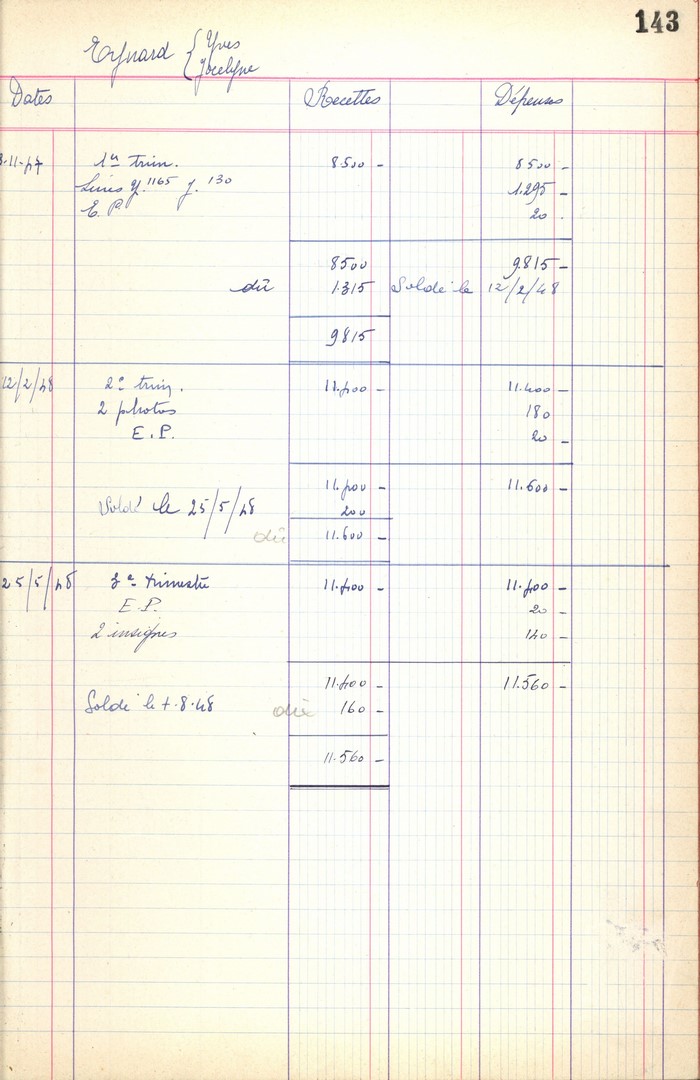 143
Eynard { Yves
Jocelyne
Dates Recettes Dépenses
3-11-47 1er trim. 8500 - 8500 -
Livres Y. 1165 J. 130 1.295 -
E. P. 20 .
8500 9.815 -
dû 1.315 Soldé le 12/2/48
9815
12/2/48 2e trim. 11.400 - 11.400 -
2 photos 180
E.P. 20 -
11.400 - 11.600 -
Soldé le 25/5/48 200
dû 11.600 -
25/5/48 3e trimestre 11.400 - 11.400 -
E.P. 20 -
2 insignes 140 -
11.400 - 11.560 -
Soldé le 7.8.48 dû 160 -
11.560 -